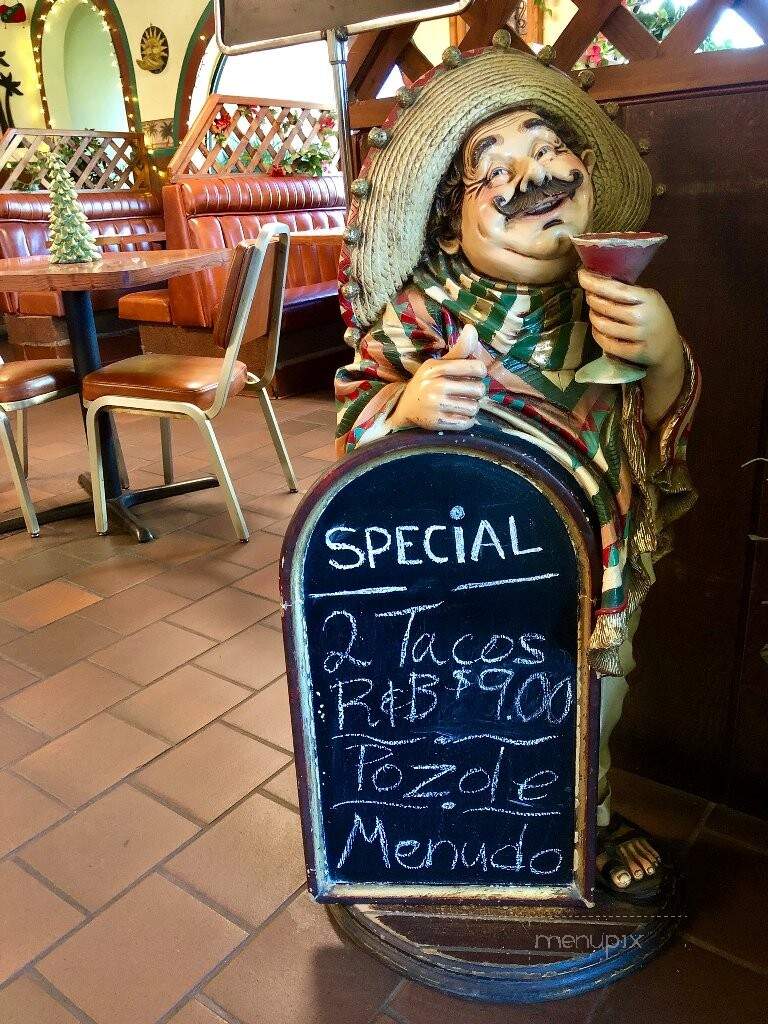 SPECiAL
2 Tacos
R&B $9.00
Pozole
Menudo
menupix